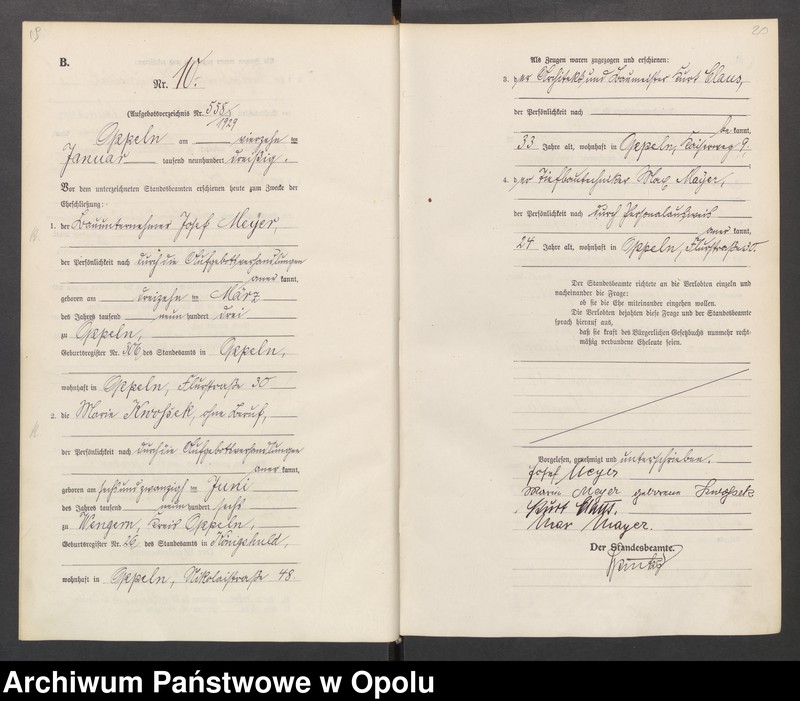 19
B.
Nr. 10.
(Aufgebotsverzeichnis Nr. 558/1929
Oppeln am vierzehn ten
Januar tausend neunhundert dreißig.
Vor dem unterzeichneten Standesbeamten erschienen heute zum Zwecke der
Eheschließung:
1. der Bauunternehmer Josef Meyer,
der Persönlichkeit nach durch die Aufgebotsverhandlungen
aner kannt,
geboren am dreizehn ten März
des Jahres tausend neun hundert drei
zu Oppeln,
Geburtsregister Nr. 306, des Standesamts in Oppeln,
wohnhaft in Oppeln, Flurstraße 30
2. die Marie Kwossek, ohne Beruf,
der Persönlichkeit nach durch die Aufgebotsverhandlungen
aner kannt,
geboren am sechsundzwanzigst ten Juni
des Jahres tausend neun hundert sechs
zu Wengern, Kreis Oppeln,
Geburtsregister Nr. 26 des Standesamts in Königshuld,
wohnhaft in Oppeln, Nikolaistraße 48.
20
Als Zeugen waren zugezogen und erschienen:
3. der Architekt und Baumeister Kurt Claus,
der Persönlichkeit nach
be kannt,
33 Jahre alt, wohnhaft in Oppeln, Kaiserweg 9.
4. der Tiefbautechniker Max Mayer,
der Persönlichkeit nach durch Personalausweis
aner kannt,
24 Jahre alt, wohnhaft in Oppeln, Flurstraße 30.
Der Standesbeamte richtete an die Verlobten einzeln und
nacheinander die Frage:
ob sie die Ehe miteinander eingehen wollen.
Die Verlobten bejahten diese Frage und der Standesbeamte
sprach hierauf aus,
daß sie kraft des Bürgerlichen Gesetzbuchs nunmehr recht-
mäßig verbundene Eheleute seien.
Vorgelesen, genehmigt und unterschrieben.
Josef Meyer
Marie Meyer geborene Kwossek
Kurt Claus.
Max Mayer.
Der Standesbeamte.
Archiwum Państwowe w Opolu